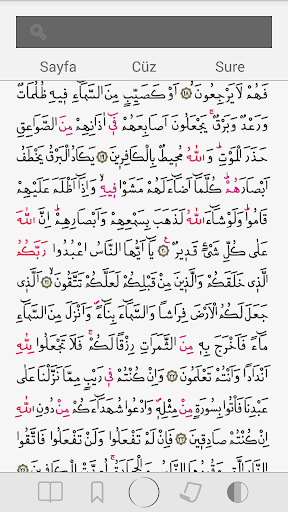 Sayfa Cüz Sure
فَهُمْ لَا يَرْجِعُونَ ﴿١٨﴾ اَوْ كَصَيِّبٍ مِنَ السَّمَٓاءِ ف۪يهِ ظُلُمَاتٌ
وَرَعْدٌ وَبَرْقٌۚ يَجْعَلُونَ اَصَابِعَهُمْ ف۪ٓي اٰذَانِهِمْ مِنَ الصَّوَاعِقِ
حَذَرَ الْمَوْتِۜ وَاللّٰهُ مُح۪يطٌ بِالْكَافِر۪ينَ ﴿١٩﴾ يَكَادُ الْبَرْقُ يَخْطَفُ
اَبْصَارَهُمْۜ كُلَّمَٓا اَضَٓاءَ لَهُمْ مَشَوْا ف۪يهِۙ وَاِذَٓا اَظْلَمَ عَلَيْهِمْ
قَامُواۜ وَلَوْ شَٓاءَ اللّٰهُ لَذَهَبَ بِسَمْعِهِمْ وَاَبْصَارِهِمْۜ اِنَّ اللّٰهَ
عَلٰى كُلِّ شَيْءٍ قَد۪يرٌ ﴿٢٠﴾ يَٓا اَيُّهَا النَّاسُ اعْبُدُوا رَبَّكُمُ
الَّذ۪ي خَلَقَكُمْ وَالَّذ۪ينَ مِنْ قَبْلِكُمْ لَعَلَّكُمْ تَتَّقُونَۙ ﴿٢١﴾ اَلَّذ۪ي
جَعَلَ لَكُمُ الْاَرْضَ فِرَاشًا وَالسَّمَٓاءَ بِنَٓاءًۖ وَاَنْزَلَ مِنَ السَّمَٓاءِ
مَٓاءً فَاَخْرَجَ بِه۪ مِنَ الثَّمَرَاتِ رِزْقًا لَكُمْۚ فَلَا تَجْعَلُوا لِلّٰهِ
اَنْدَادًا وَاَنْتُمْ تَعْلَمُونَ ﴿٢٢﴾ وَاِنْ كُنْتُمْ ف۪ي رَيْبٍ مِمَّا نَزَّلْنَا عَلٰى
عَبْدِنَا فَأْتُوا بِسُورَةٍ مِنْ مِثْلِه۪ۖ وَادْعُوا شُهَدَٓاءَكُمْ مِنْ دُونِ اللّٰهِ
اِنْ كُنْتُمْ صَادِق۪ينَ ﴿٢٣﴾ فَاِنْ لَمْ تَفْعَلُوا وَلَنْ تَفْعَلُوا فَاتَّقُوا